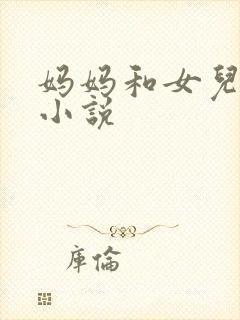 妈妈和女兒
小説
库倫